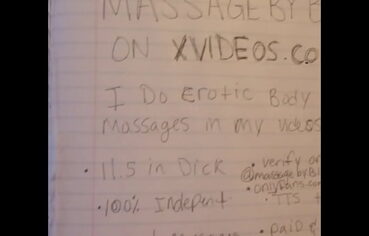 MASSAGE BY B
ON XVIDEOS.CO
I Do Erotic Body
Massages in my videos
• 11.5 in Dick
• 100% Indepent
• verify on
@massagebyBi
• onlyfans.com
• TTS +
• paid